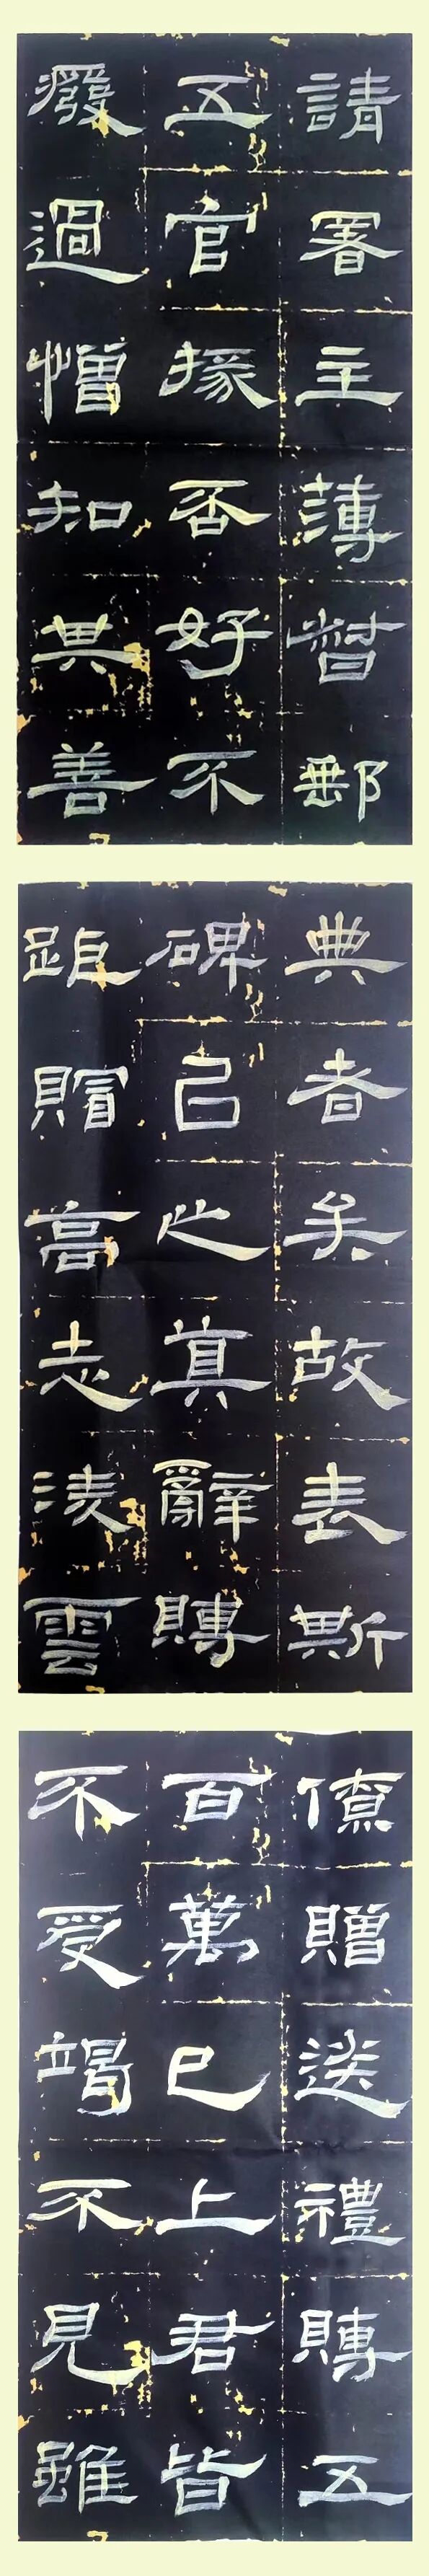 請署主薄督郵
五官掾否好不
癈過憎知其善
典者矣故表斯
碑己之真辭賻
距賵高志淩雲
僚贈送禮賻五
百萬已上君皆
不受竭不見雖